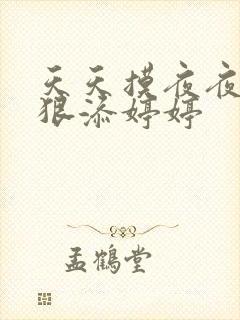 天天摸夜夜
狠添婷婷
孟鹤堂